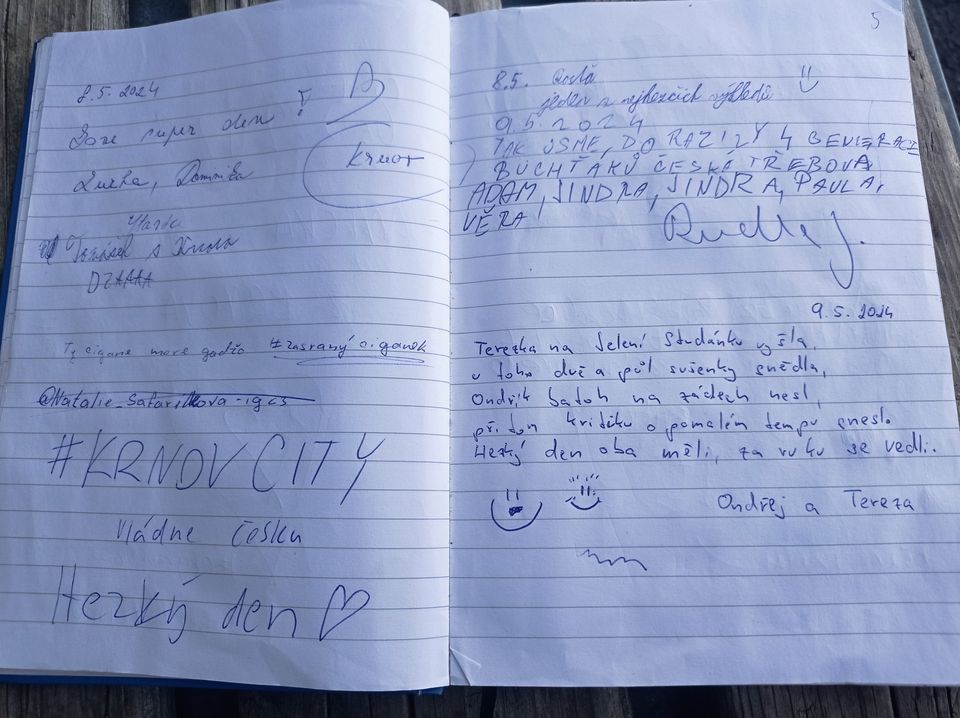 8.5. 2024
super den !
Krnov
Lucka, Dominika
Tomášek s
Ty cigane more gadžo #zasraný ciganek
#KRNOV CITY
vládne česku
Hezký den ♡
5
8.5.
jeden z nejhezčích výhledů
9.5. 2024
TAK JSME, DORAZILY 4 GENERACE
BUCHŤÁKŮ ČESKÁ TŘEBOVÁ
ADAM, JINDRA, JINDRA, PAULA,
VĚRA
9.5. 2024
Terezka na Jelení Studánku vyšla,
u toho dvě a půl sušenky snědla,
Ondřík batoh na zádech nesl,
při tom kritiku o pomalém tempu snesl.
Hezký den oba měli, za ruku se vedli.
Ondřej a Tereza